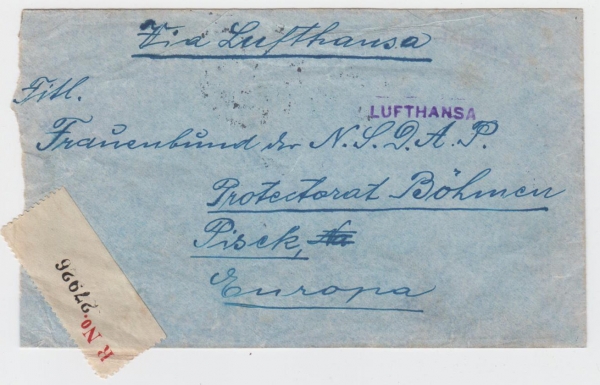 Via Lufthansa
Titl.
LUFTHANSA
Frauenbund der N.S.D.A.P.
Protectorat Böhmen
Pisek,
Europa
R No. 27926